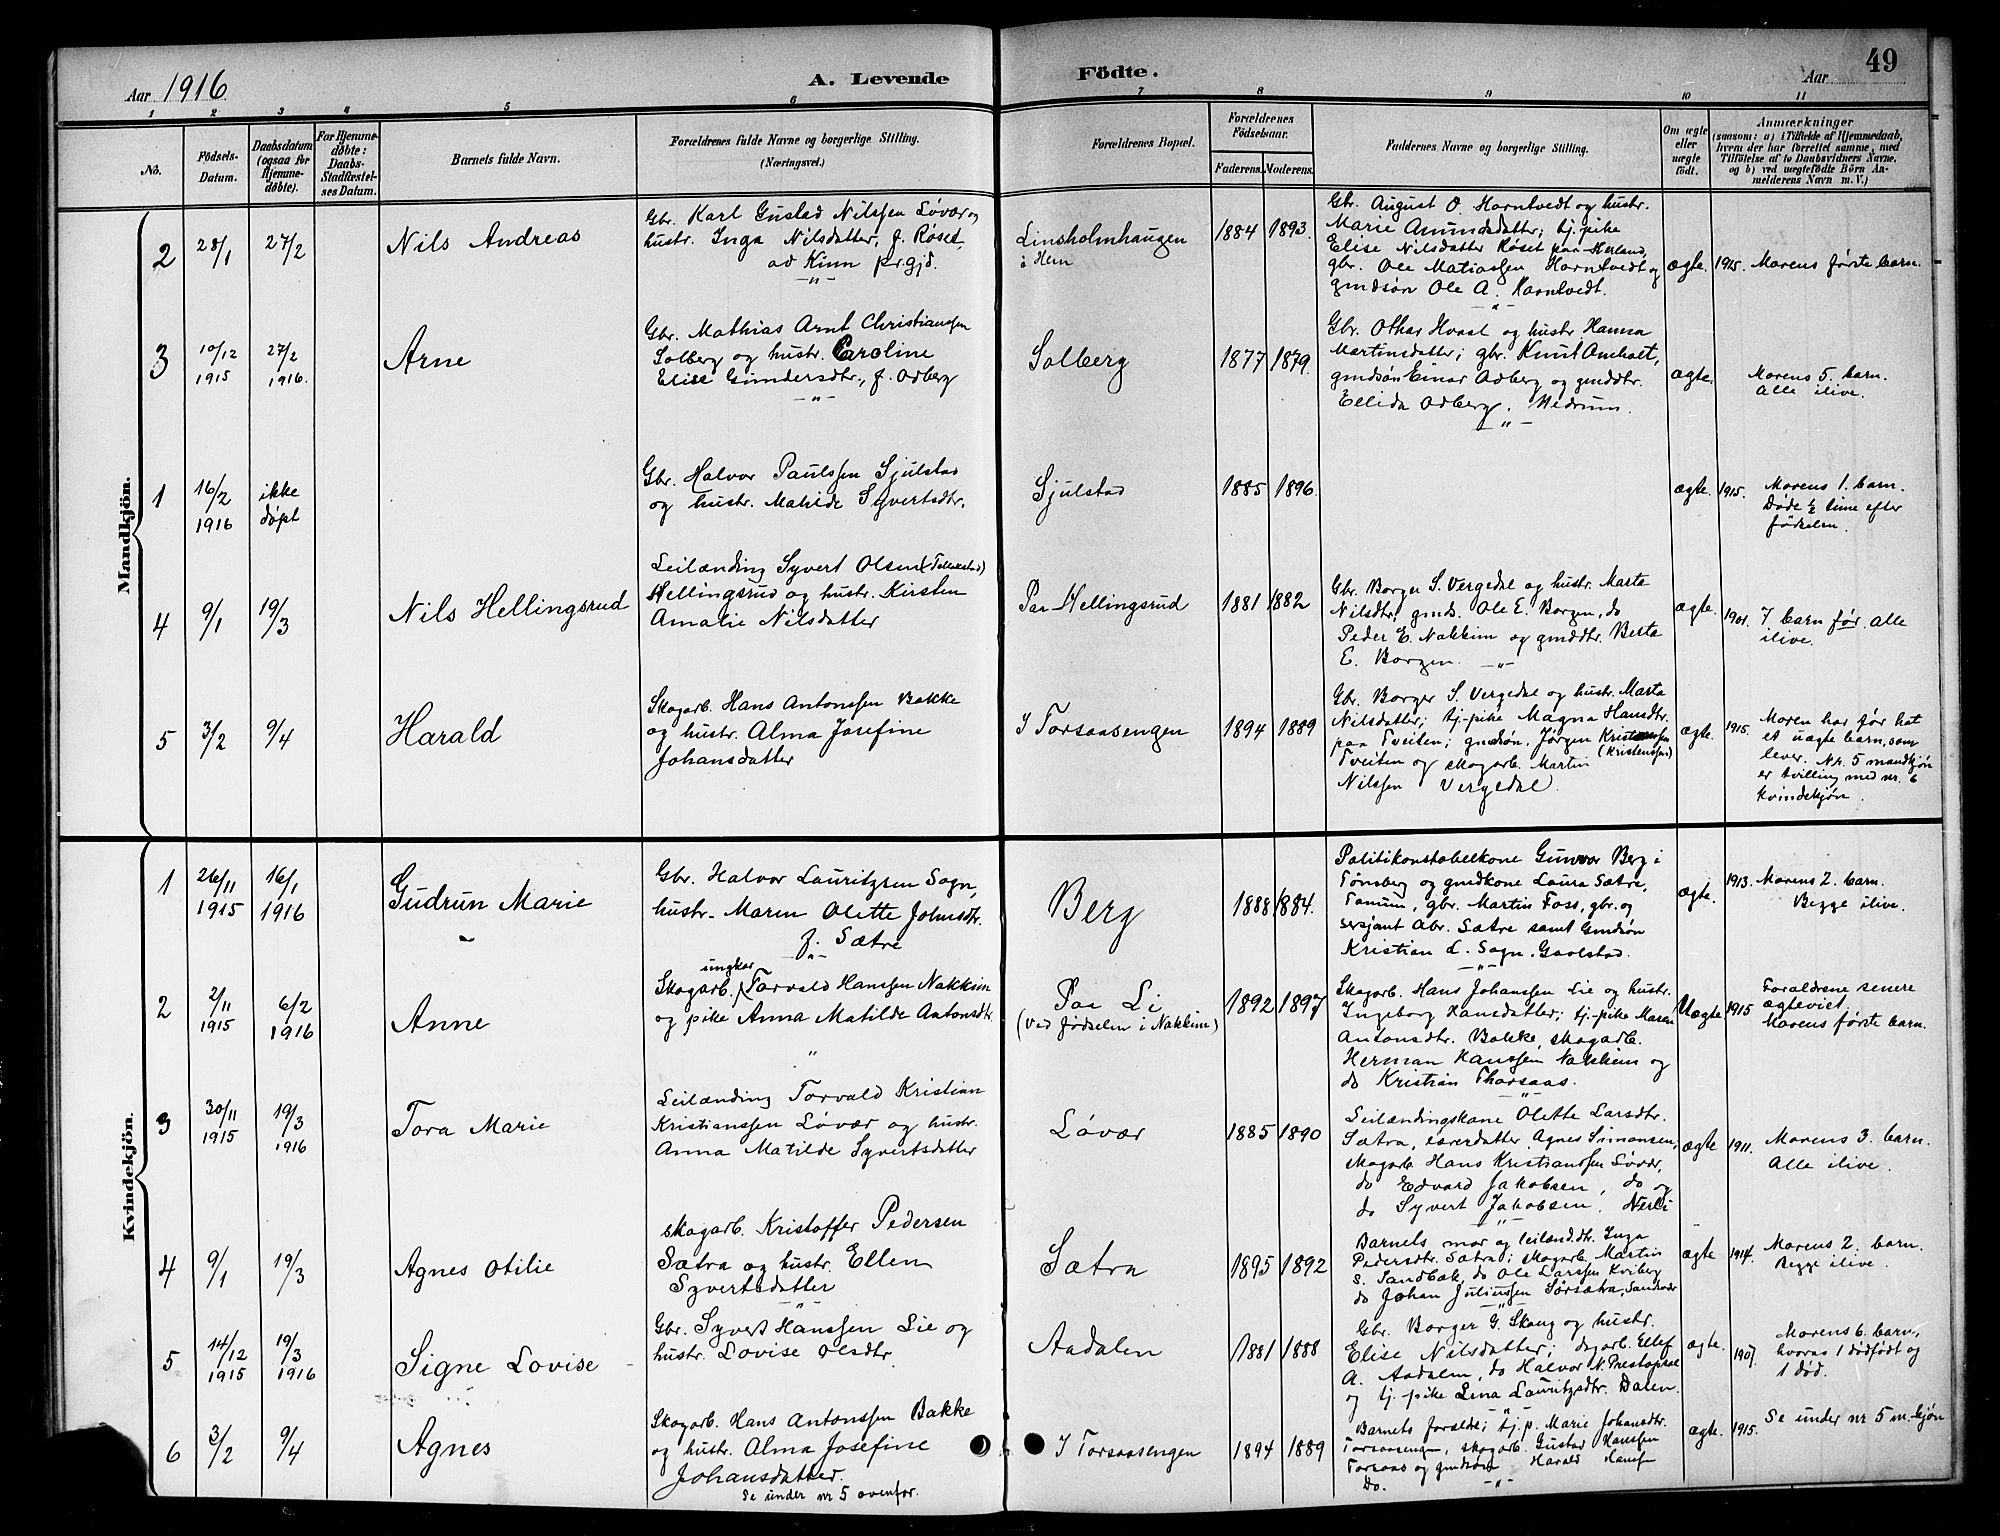 Aar 1916
A. Levende
Födte.
Aar
49
1 2 3 4 5 6 7 8 9 10 11
No.
Födsels-
Datum.
Daabsdatum
(ogsaa for
Hjemme-
döbte).
For Hjemme-
döbte:
Daabs-
Stadfæstel-
ses Datum.
Barnets fulde Navn.
Forældrenes fulde Navne og borgerlige Stilling.
(Næringsvei.)
Forældrenes Bopæl.
Forældrenes
Födselsaar.
Faderens.
Moderens.
Faddernes Navne og borgerlige Stilling.
Om ægte
eller
uægte
födt.
Anmærkninger
(saasom: a) i Tilfælde af Hjemmedaab,
hvem der har forrettet samme, med
Tilföielse af to Daabsvidners Navne,
og b) ved uægtefödte Börn An-
melderens Navn m. V.)
Mandkjön.
2
28/1
27/2
Nils Andreas
Gbr. Karl Gustad Nilssen Løvær og
hustr. Inga Nilsdatter, f. Røset
ad Kinn prgjd.
Linsholmhaugen
i Hem
1884
1893
Gbr. August O. Horntvedt og hustr.
Marie Amundsdatter; tj.pike
Elise Nilsdatter Røset paa Herland,
gbr. Ole Matiassen Horntvedt og
gmdsøn Ole A. Horntvedt.
ægte.
1915.
Morens første barn.
3
10/12
1915
27/2
1916.
Arne
Gbr. Mathias Arnt Christianssen
Solberg og hustr. Caroline
Elise Gundersdtr., f. Odberg
Solberg
1877
1879
Gbr. Othar Hvaal og hustr Hanna
Martinsdatter; gbr. Knut Omholt,
gmdsøn Einar Odberg og gmddtr.
Ellida Odberg. Hedrum.
ægte.
Morens 5. barn.
Alle ilive.
1
16/2
1916
ikke
døpt
Gbr. Halvor Paulssen Gjulstad
og hustr. Matilde Syvertsdtr.
Gjulstad
1885
1896
ægte
1915.
Morens 1. barn.
Døde ½ time efter
fødselen.
4
9/1
19/3
Nils Hellingsrud
Leilænding Syvert Olsen
Hellingsrud og hustr. Kirsten
Amalie Nilsdatter
Paa Hellingsrud
1881
1882
Gbr. Borger S. Vergedal og hustr. Marta
Nilsdtr; gmds. Ole E. Borgen, do
Peder E. Nakkim og gmddtr. Berta
E. Borgen.
ægte.
1901.
7 barn før. alle
ilive.
5
3/2
9/4
Harald
Skogarb. Hans Antonssen Bakke
og hustr. Alma Josefine
Johansdatter
I Torsaasengen
1894
1889
Gbr. Borger S. Vergedal og hustr. Marta
Nilsdatter; tj.-pike Magna Hansdtr.
paa Tveiten; gmdsøn, Jørgen
(Kristenssen)
Tveiten og skogarb. Martin
Nilssen Vergedal.
ægte.
1915.
Moren har før hat
et uægte barn, som
lever. Nr. 5 mandkjøn
er tvilling med nr. 6
kvindekjøn.
Kvindekjön.
1
26/11
1915
16/1
1916
Gudrun Marie
Gbr. Halvor Lauritzsen Sogn,
hustr. Maren Olette Johnsdtr.
f. Sætre
Berg
1888
1884.
Politikonstabelkone Gunvor Berg i
Tønsberg og gmdkone Laura Sætre,
Tanum, gbr. Martin Foss, gbr. og
sersjant Abr. Sætre samt Gmdsøn
Kristian L. Sogn. Gaolstad.
ægte.
1913.
Morens 2. barn.
Begge ilive.
2
2/11
1915
6/2
1916
Anne
ungkar
Skogarb. Torvald Hanssen Nakkim
og pike Anna Matilde Antonsdtr.
Paa Li
(Ved fødselen i Nakkim)
1892
1897
Skogarb. Hans Johanssen Lie og hustr.
Ingeborg Hansdatter; tj.-pike Maren
Antonsdtr. Bakke, skogarb.
Herman Hanssen Nakkim og
do Kristian Thorsaas.
Uægte
1915
Foraldrene senere
egteviet.
Morens første barn.
3
30/11
1915
19/3
1916
Tora Marie
Leilænding Torvald Kristian
Kristianssen Løvær og hustr.
Anna Matilde Syvertsdatter
Løvær
1885
1890
Leilændingskone Olette Larsdtr.
Sætra, eierdatter Agnes Simonsen,
skogarb Hans Kristianssen Løvær,
do Edvard Jakobsen, do og
do Syvert Jakobsen. Nerli
ægte
1911.
Morens 3. barn.
Alle ilive.
4
9/1
19/3
Agnes Otilie
skogarb. Kristoffer Pedersen
Sætra og hustr. Ellen
Syvertsdatter
Sætra
1895
1892
Barnets mor og leiland.dtr. Inga
Pedersdtr. Sætra; skogarb. Martin
S. Sandbæk, do Ole Larssen Kviberg
do Johan Juliussen Sørsætra, Sandvær
ægte
1914.
Morens 2. barn.
Begge ilive.
5
14/12
1915
19/3
1916
Signe Lovise
Gbr. Syvert Hanssen Lie og
hustr. Lovise Olsdtr.
Aadalen
1881
1888
Gbr. Borger G. Skaug og hustr.
Elise Nilsdatter; dgarb. Ellef
A. Aadalen, do Halvor N. Prestaasæ
og tj. pike Lina Lauritzsdtr. Dalen.
ægte.
1907.
Morens 6. barn,
hvorav 1 dødfødt og
1 død.
6
3/2
9/4
Agnes
Skogarb. Hans Antonssen Bakke
og hustr. Alma Josefine
Johansdatter.
Se under nr 5 ovenfor.
I Torsaasengen
1894
1889
Barnets forældr; tj. p. Marie Johansdtr.
Torsaasengen, skogarb. Gustad Hanssen
Torsaas og gmdsøn Harald Hanssen
Do.
ægte.
1915.
Se under nr 5 m.kjøn